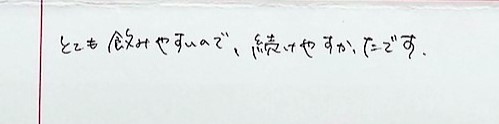 とても飲みやすいので、続けやすかったです.